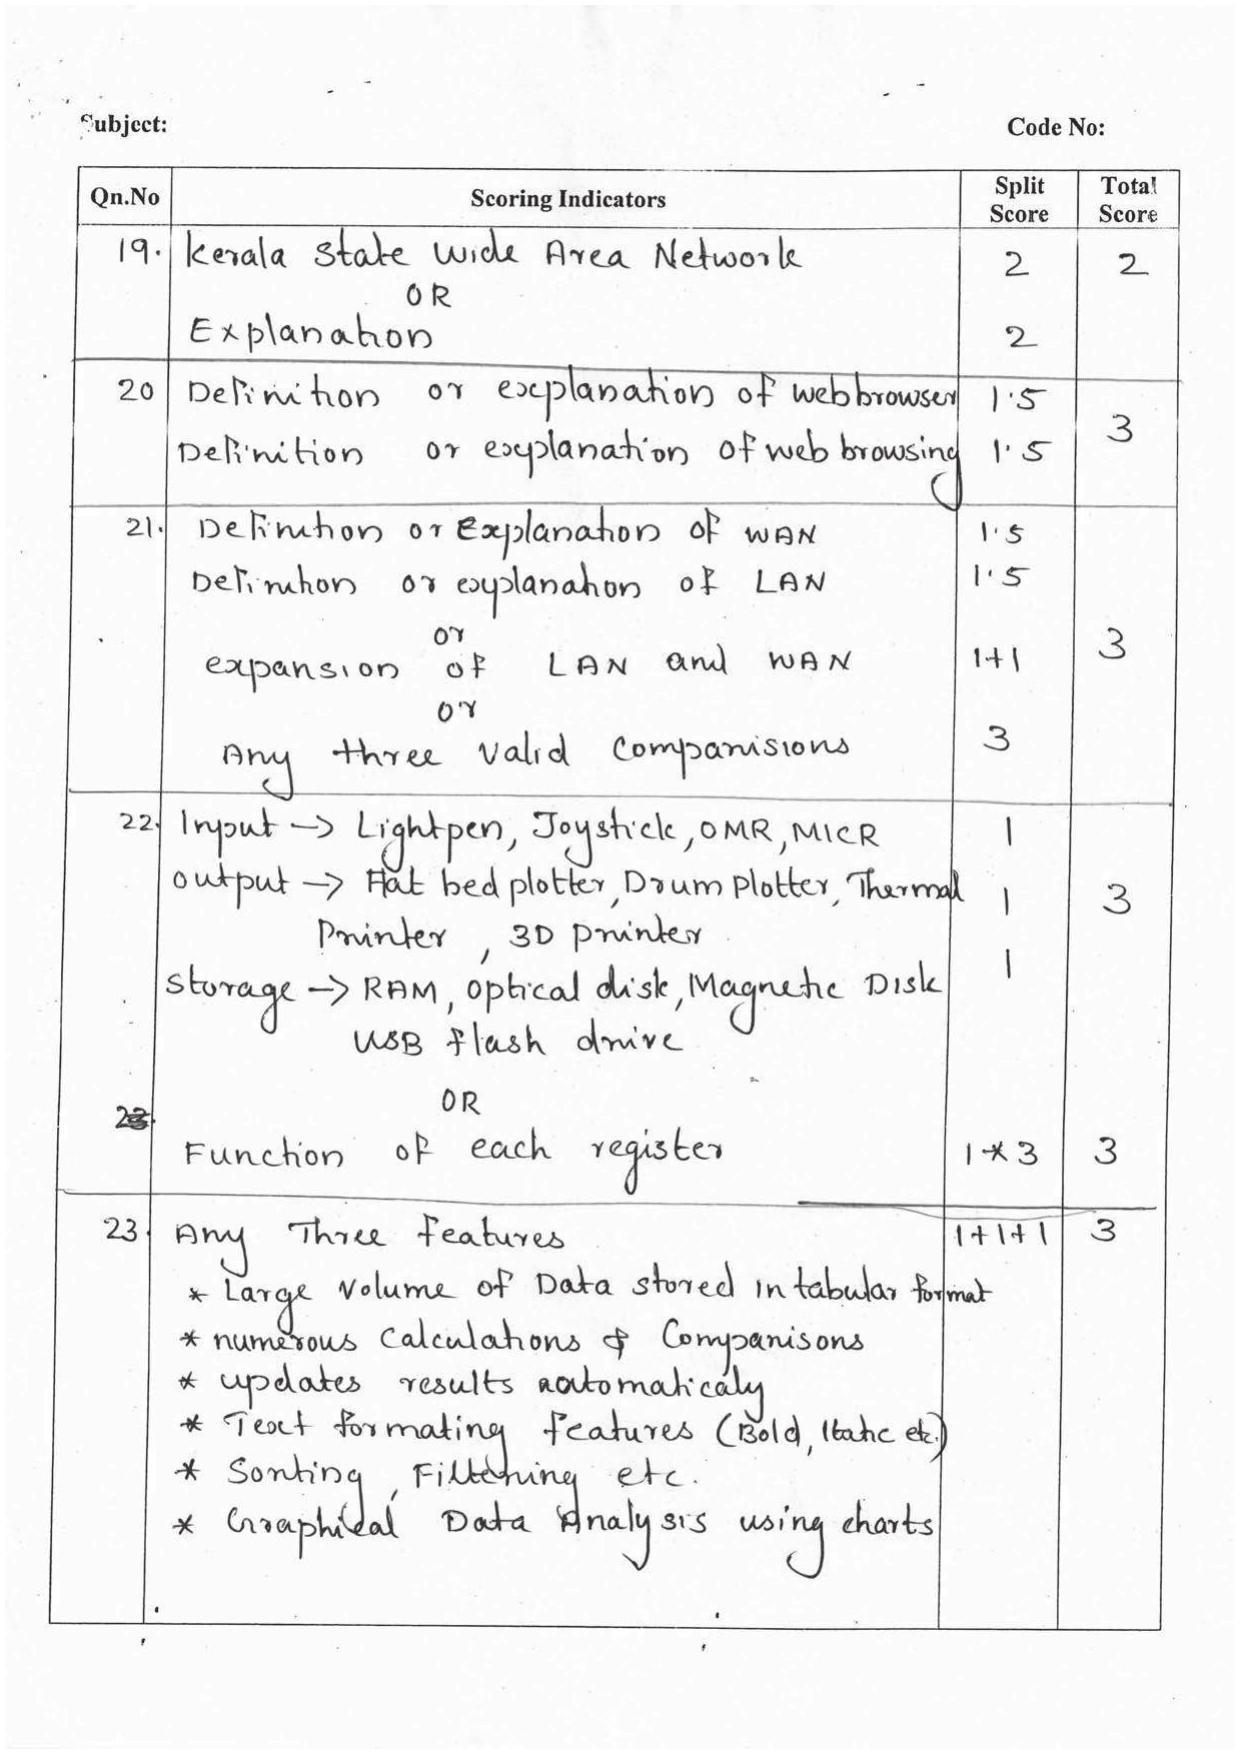 Subject: Code No:
Qn.No Scoring Indicators Split Score Total Score
19. Kerala State Wide Area Network 2 2
OR
Explanation 2
20 Definition or explanation of webbrowser 1.5
3
Definition or explanation of web browsing 1.5
21. Definition or Explanation of WAN 1.5
Definition or explanation of LAN 1.5
or
expansion of LAN and WAN 1+1 3
or
Any three valid Companisions 3
22. Input -> Lightpen, Joystick, OMR, MICR 1
output -> Flat bed plotter, Drum Plotter, Thermal 1 3
Printer, 3D printer
Storage -> RAM, optical disk, Magnetic Disk 1
USB flash drive
OR
Function of each register 1*3 3
23. Any Three features 1+1+1 3
* Large volume of Data stored in tabular format
* numerous Calculations & Comparisons
* updates results automaticaly
* Text formating features (Bold, Italic etc.)
* Sorting, Filtering etc.
* Graphical Data Analysis using charts